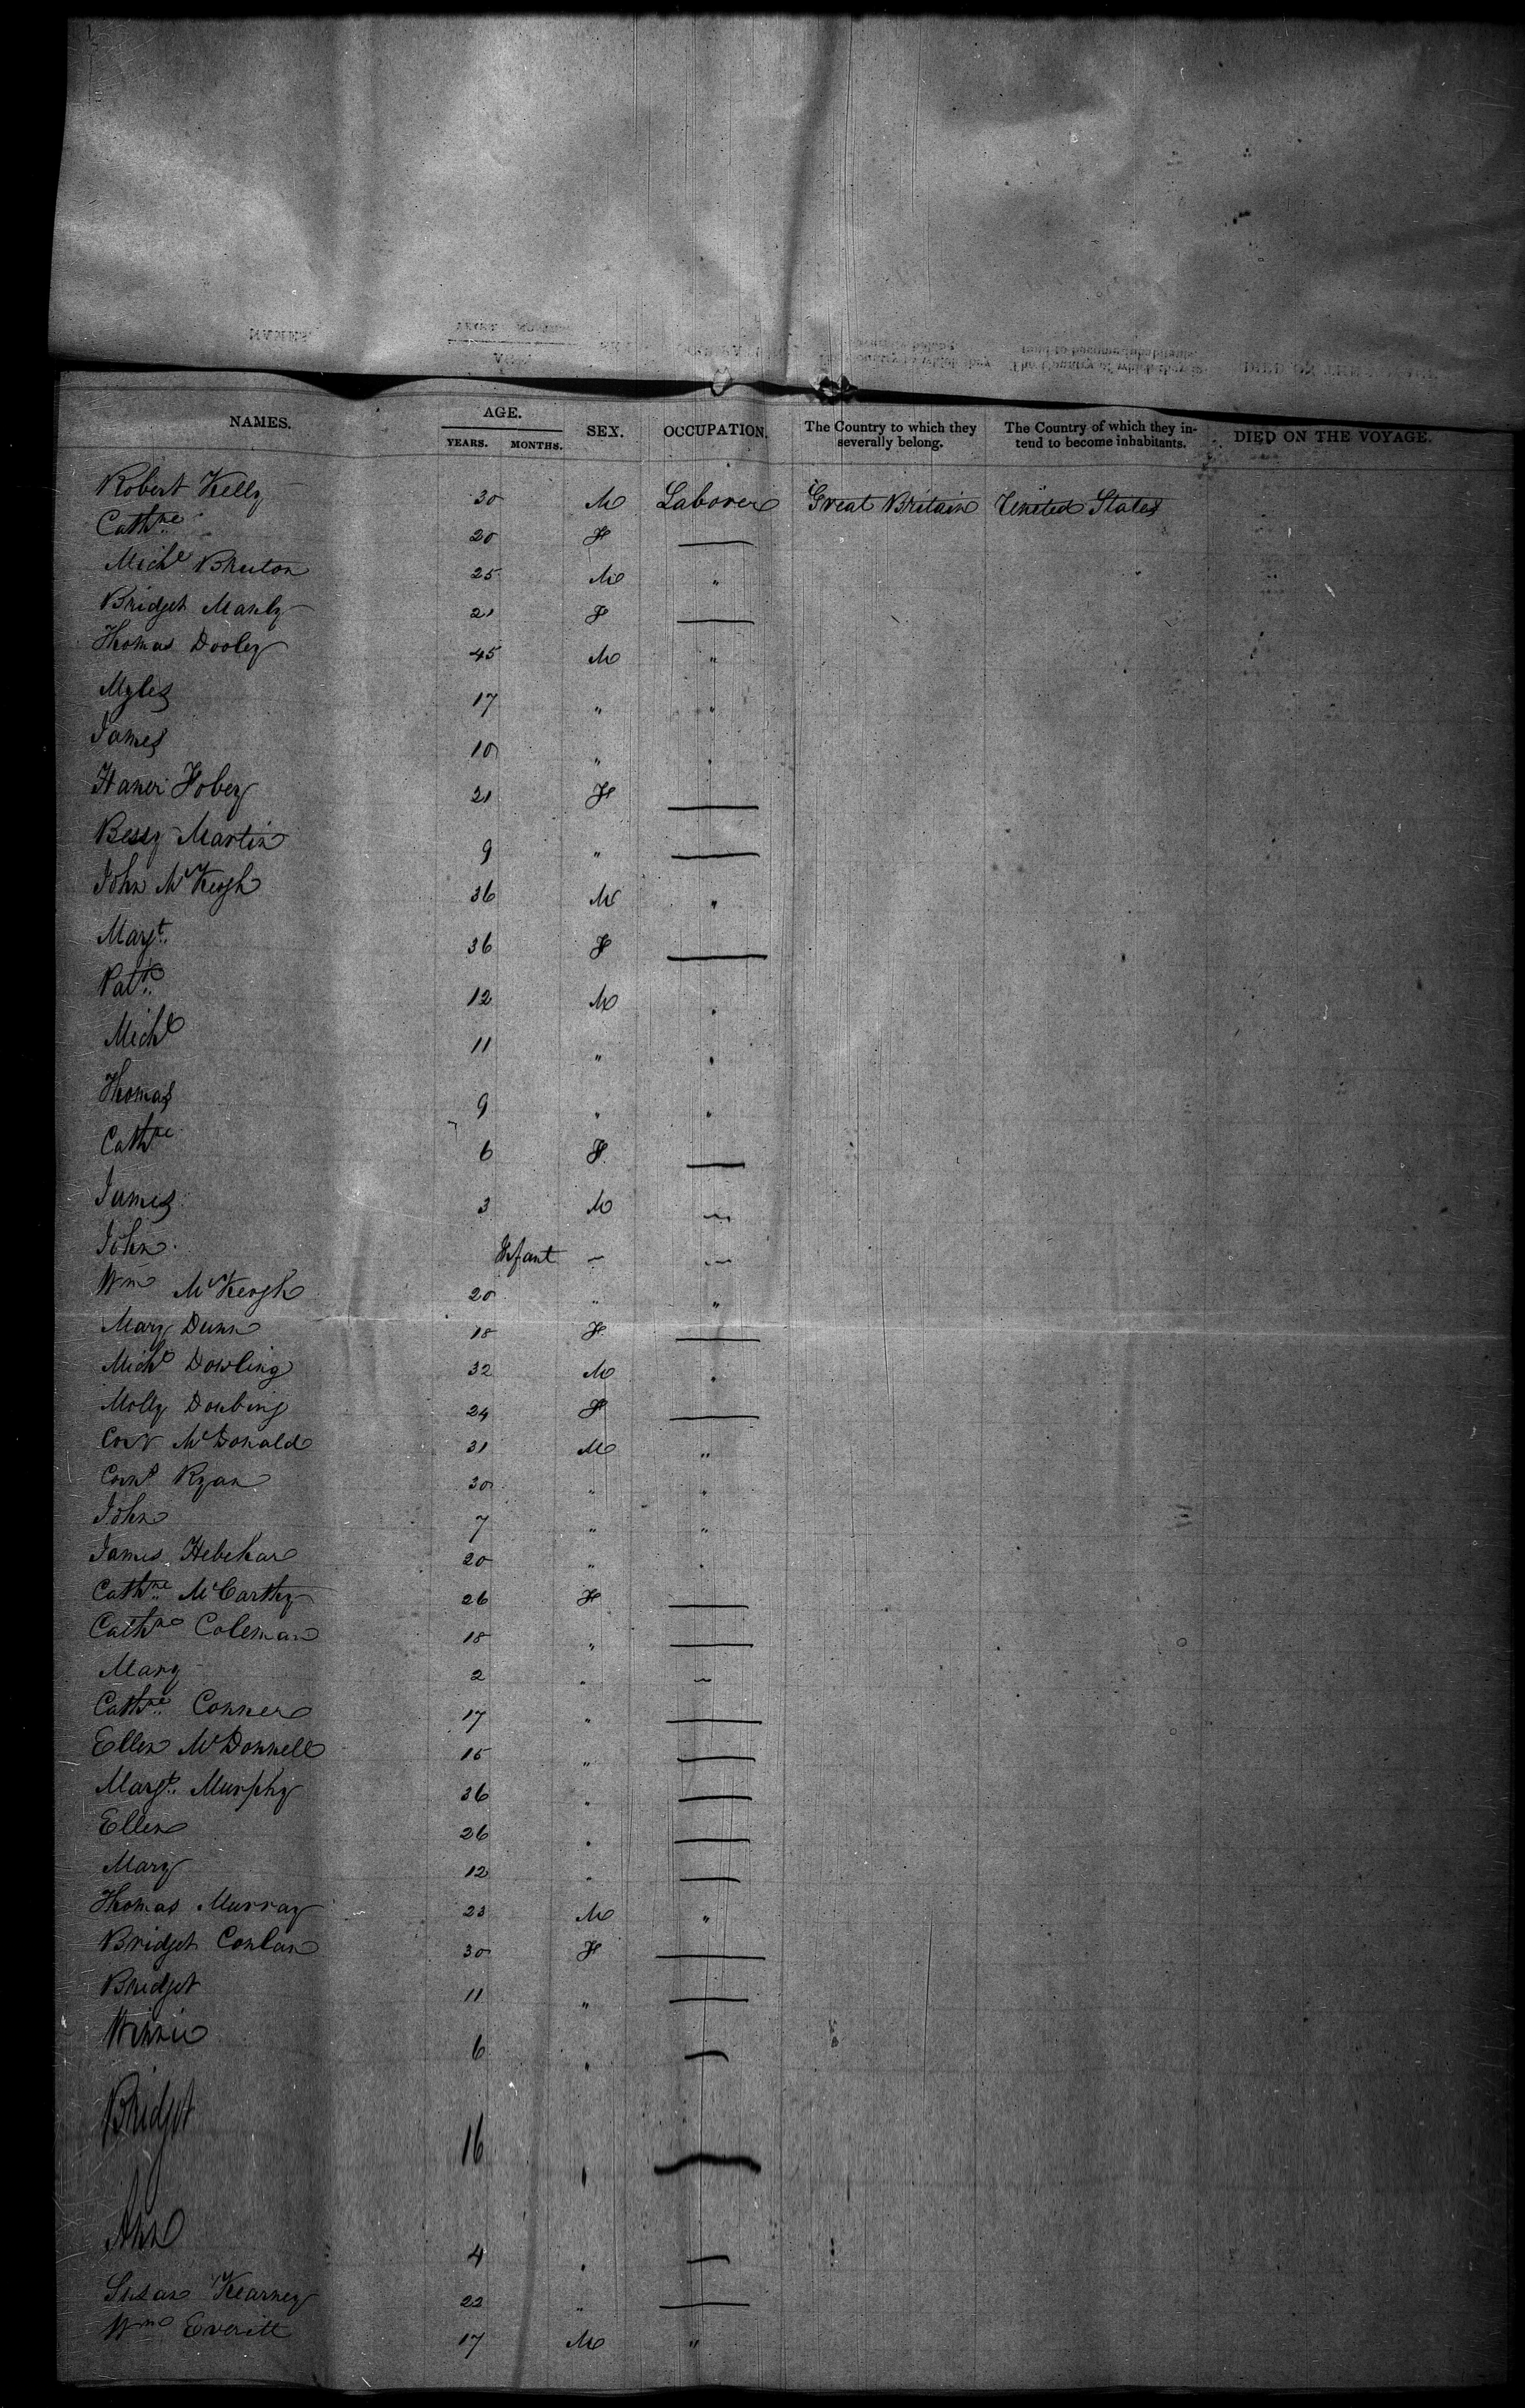 NAMES. AGE. SEX. OCCUPATION. The Country to which they severally belong. The Country of which they intend to become inhabitants. DIED ON THE VOYAGE.
YEARS. MONTHS.
Robert Kelly 30 M Laborer Great Britain United States
Cathne 20 F —
Michl Bruton 25 M "
Bridget Manly 21 F —
Thomas Dooley 45 M "
Myles 17 " "
James 10 " "
21 F —
Bessy Martin 9 " —
John McKeogh 36 M "
Margt. 36 F —
Patk. 12 M "
Michl 11 " "
Thomas 9 " "
Cathne 6 F —
James 3 M —
John Infant — —
Wm McKeogh 20 " "
Mary Dunn 18 F —
Michl Dowling 32 M "
Molly Dowling 24 F —
McDonald 31 M "
Corns Ryan 30 " "
John 7 " "
James 20 " "
Cathne McCarthy 26 F —
Cathne Coleman 18 " —
Mary 2 " —
Cathne Conner 17 " —
Ellen McDonnell 15 " —
Margt. Murphy 36 " —
Ellen 26 " —
Mary 12 " —
Thomas Murray 23 M "
Bridget Conlan 30 F —
Bridget 11 " —
Winnie 6 " —
Bridget 16 " —
Ann 4 " —
Susan Kearney 22 " —
Wm Everitt 17 M "